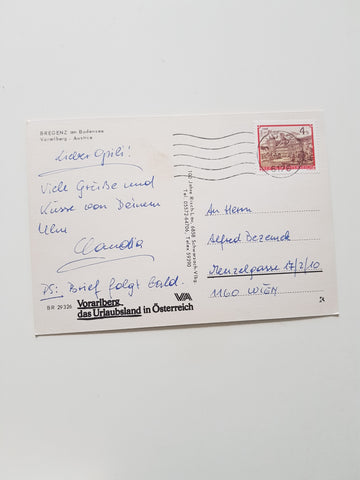 BREGENZ am Bodensee
Vorarlberg - Austria
Lieber Opili!
Viele Grüße und
Küsse von Deinem
Ulm
Claudia
PS: Brief folgt bald.
BR 29326
Vorarlberg
das Urlaubsland in Österreich
VA
100 Jahre Risch-Lau, 6858 Schwarzach-Vlbg.
Tel. 05572-
4
An Herrn
Alfred Bezemek
Menzelgasse 17/2/10
1160 WIEN